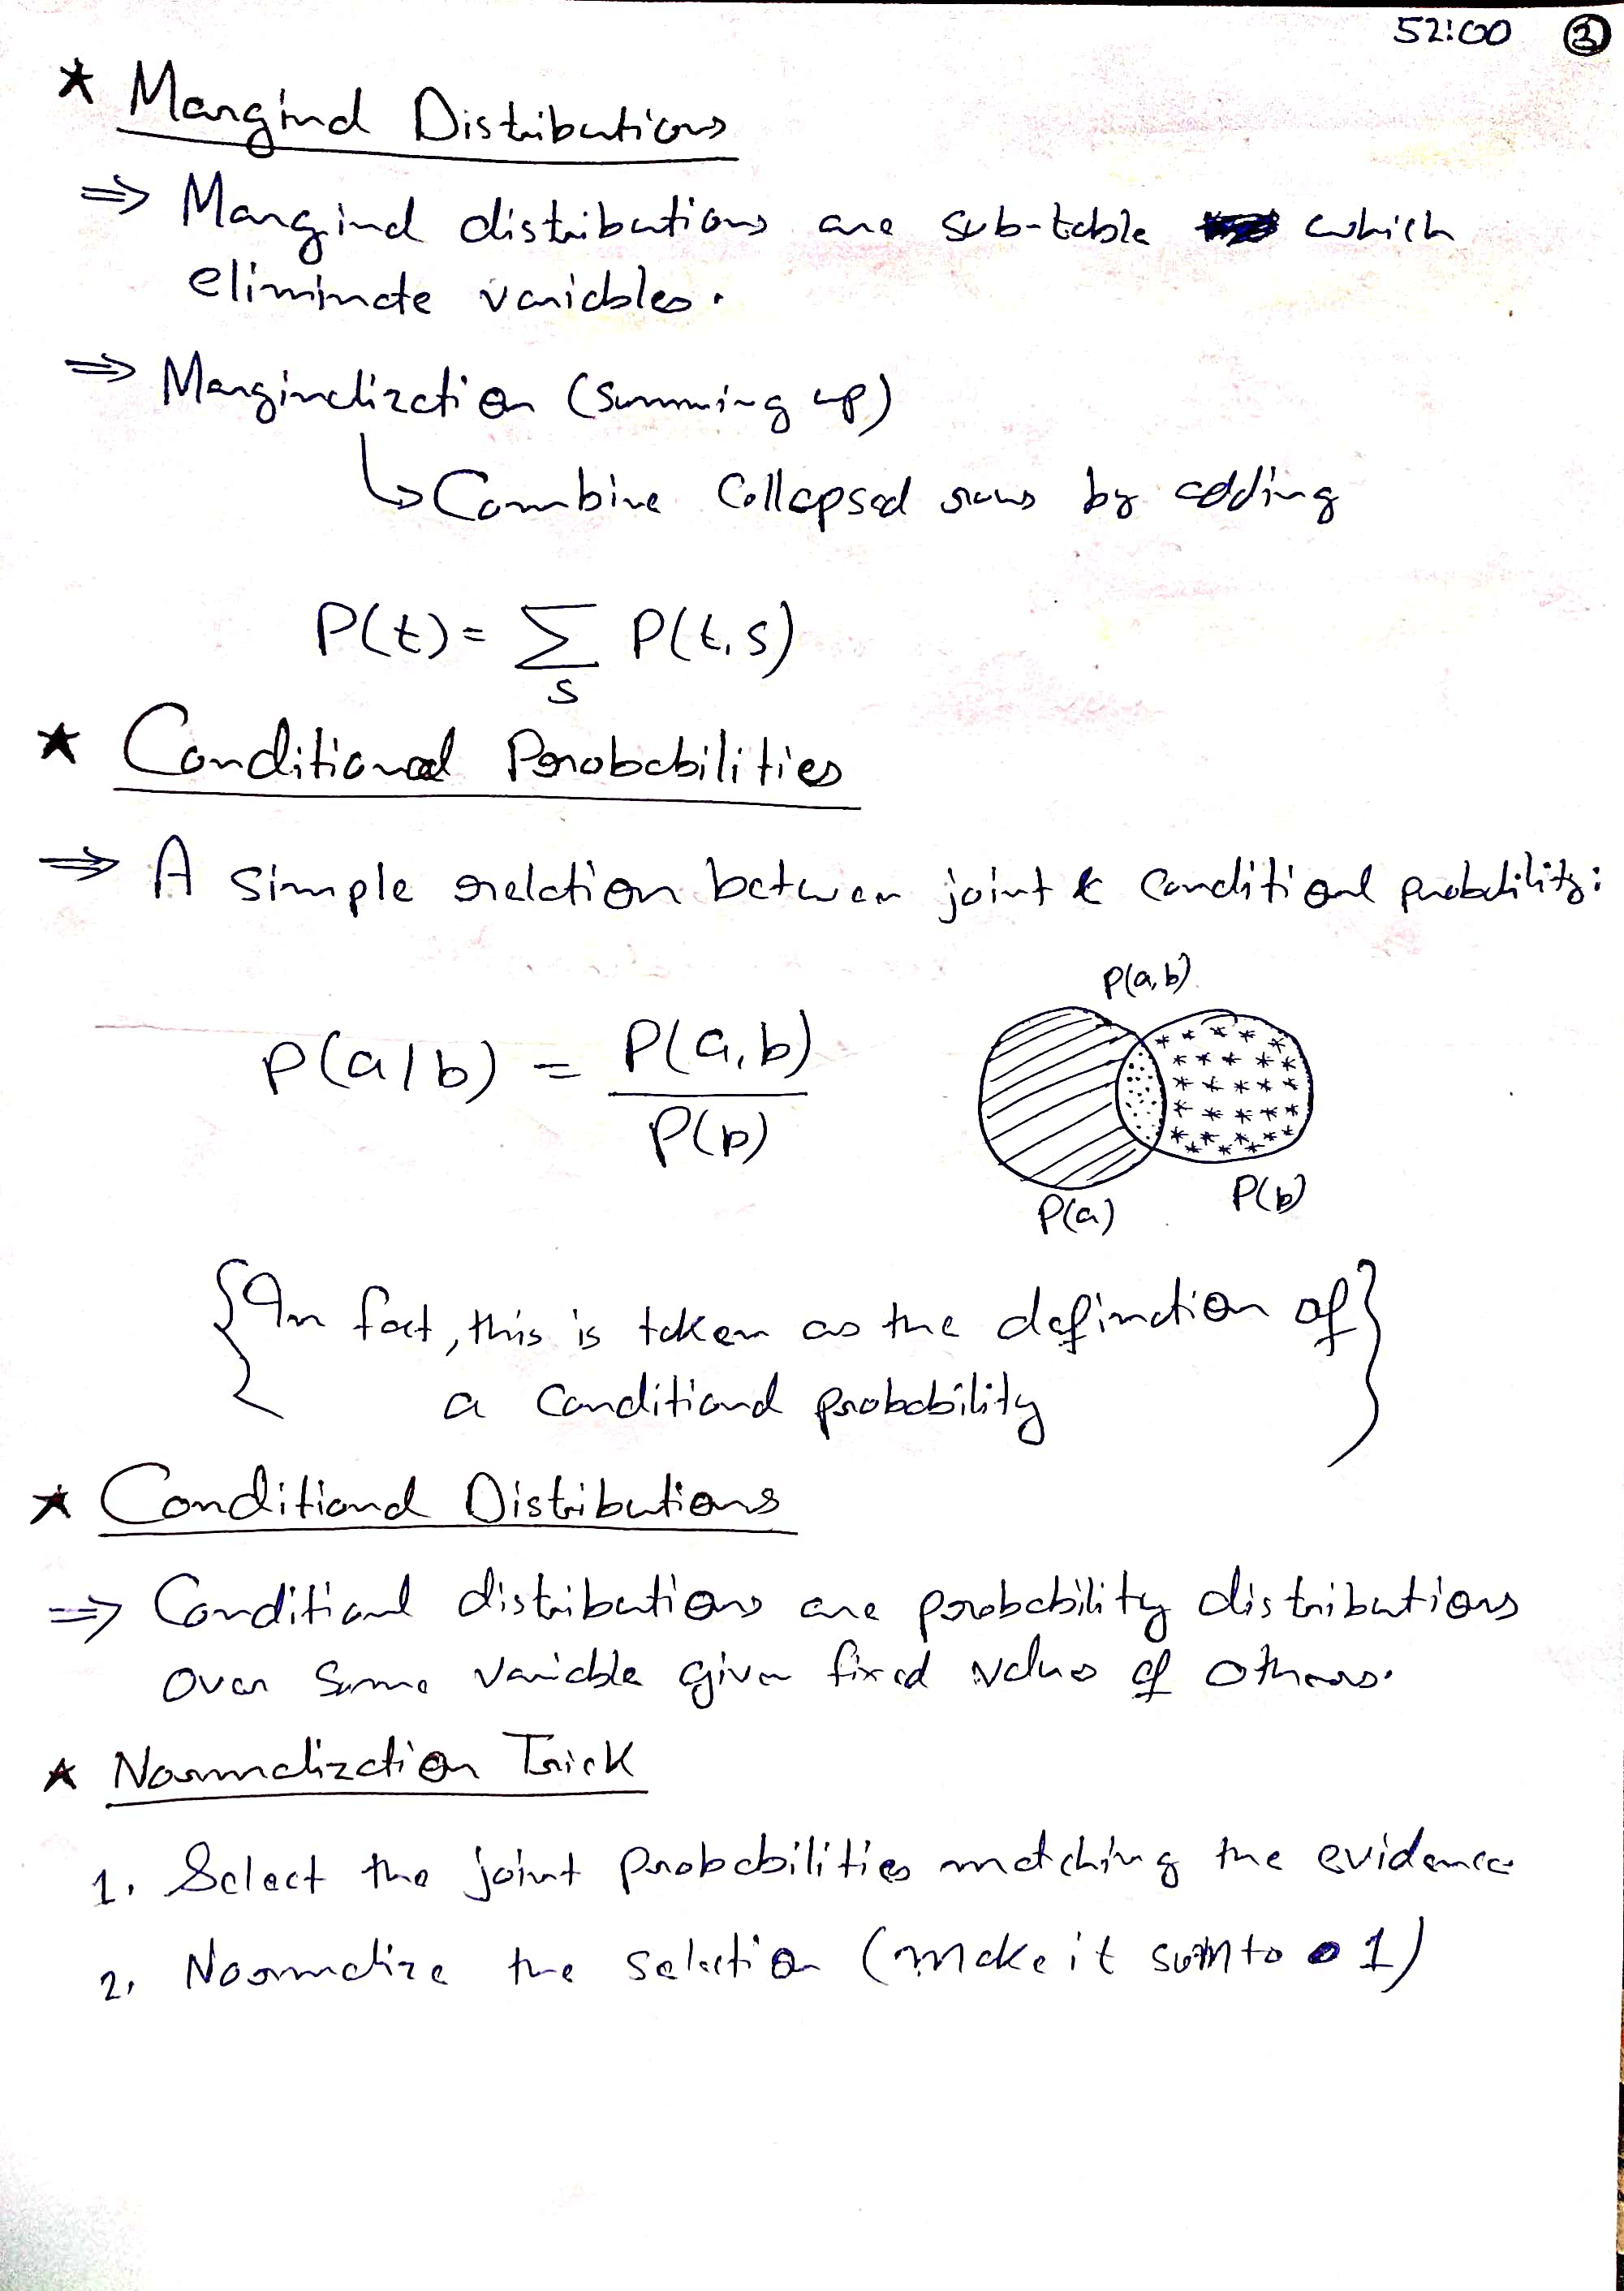 52:00 3
* Marginal Distributions
⇒ Marginal distributions are sub-table which
eliminate variables.
⇒ Marginalization (summing up)
↳ Combine Collapsed rows by adding
P(t) = Σ P(t,s)
s
* Conditional Probabilities
⇒ A simple relation between joint & Conditional probability:
P(a,b)
P(a|b) = P(a,b)
P(b)
P(a) P(b)
{In fact, this is taken as the defination of}
a Conditional probability
* Conditional Distributions
⇒ Conditional distributions are probability distributions
over some variable given fixed values of others.
* Normalization Trick
1. Select the joint probabilities matching the evidence
2. Normalize the selection (make it sum to 1)